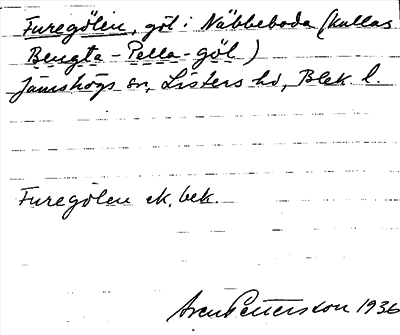 Furegölen, göl i Näbbeboda (kallas
Bengta-Pella-göl)
Jämshögs sn, Listers hd, Blek. l.
Furegölen ek. bek.
Sven Pettersson 1936